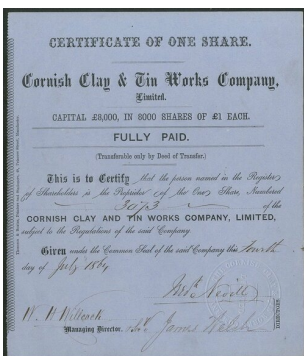 CERTIFICATE OF ONE SHARE.
Cornish Clay & Tin Works Company,
Limited.
CAPITAL £8,000, IN 8000 SHARES OF £1 EACH.
FULLY PAID.
(Transferable only by Deed of Transfer.)
This is to Certify that the person named in the Register
of Shareholders is the Proprietor of the One Share, Numbered
of the
CORNISH CLAY AND TIN WORKS COMPANY, LIMITED,
subject to the Regulations of the said Company.
Given under the Common Seal of the said Company this fourth
day of July
W. H. Willcock
Managing Director.
James Welsh